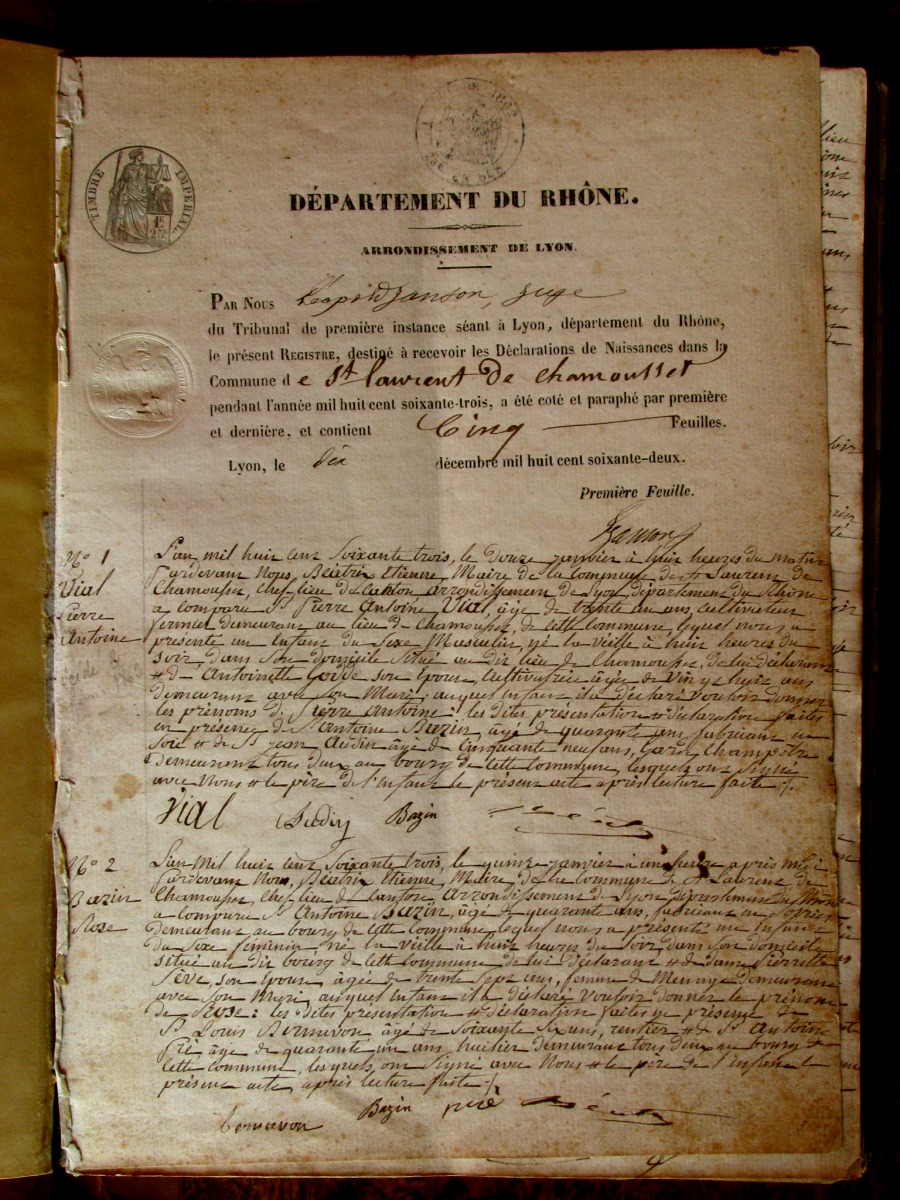 TIMBRE IMPERIAL
1F
25c
DÉPARTEMENT DU RHÔNE.
ARRONDISSEMENT DE LYON.
PAR NOUS Janson, juge
du Tribunal de première instance séant à Lyon, département du Rhône,
le présent REGISTRE, destiné à recevoir les Déclarations de Naissances dans la
Commune de St laurent de chamousset
pendant l'année mil huit cent soixante-trois, a été coté et paraphé par première
et dernière, et contient Cinq Feuilles.
Lyon, le dix décembre mil huit cent soixante-deux.
Première Feuille.
Janson
No 1
Vial
Pierre
Antoine
L'an mil huit cent Soixante trois, le Douze janvier à huit heures du matin
Pardevant Nous, Béatrix Etienne, Maire de la commune de St Laurent de
Chamousset, chef lieu de Canton, arrondissement de Lyon, département du Rhône
a comparu Sr Pierre Antoine Vial, âgé de trente un ans, cultivateur
fermier demeurant au lieu de Chamousset, de cette commune, lequel nous a
présenté un Enfant du Sexe Masculin, né la veille à huit heures du
soir, dans son domicile situé au dit lieu de Chamousset, de lui déclarant
et de Antoinette son épouse, cultivatrice âgée de vingt huit ans
demeurant avec son Mari; auquel Enfant il a déclaré vouloir donner
les prénoms de Pierre Antoine; les dites présentation et déclaration faites
en présence de Sr Antoine Bazin, âgé de quarante ans, fabricant en
soie et de Sr jean Audin âgé de cinquante neuf ans, Garde champêtre
demeurant tous deux au bourg de cette commune, lesquels ont signé
avec nous et le père de l'Enfant le présent acte après lecture faite
Vial Audin Bazin Béatrix
No 2
Bazin
Rose
L'an Mil huit cent Soixante trois, le quinze janvier à une heure après midi
Pardevant Nous, Béatrix Etienne, Maire de la commune de St Laurent de
Chamousset, Chef lieu de Canton, Arrondissement de Lyon, département du Rhône
a comparu Sr Antoine Bazin, âgé de quarante ans, fabricant en Soieries
demeurant au bourg de cette commune, lequel nous a présenté un Enfant
du Sexe féminin né la veille à huit heures du soir dans son domicile
situé au dit bourg de cette commune de lui déclarant et de dame Pierrette
Sève, son épouse âgée de trente sept ans, femme de Ménage demeurant
avec son Mari, auquel Enfant il a déclaré vouloir donner le prénom
de Rose; les dites présentation et déclaration faites en présence de
Sr Louis Bernavon âgé de Soixante Six ans, rentier et de Sr Antoine
Pré âgé de quarante un ans, huilier demeurant tous deux au bourg de
cette commune, lesquels ont signé avec Nous et le père de l'enfant le
présent acte, après lecture faite
Bernavon Bazin pré Béatrix